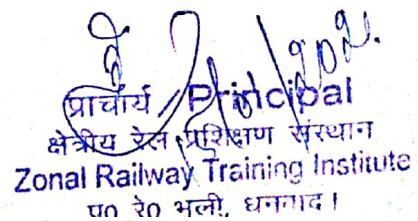 प्राचार्य / Principal
क्षेत्रीय रेल प्रशिक्षण संस्थान
Zonal Railway Training Institute
पू० रे० भूली, धनबाद।